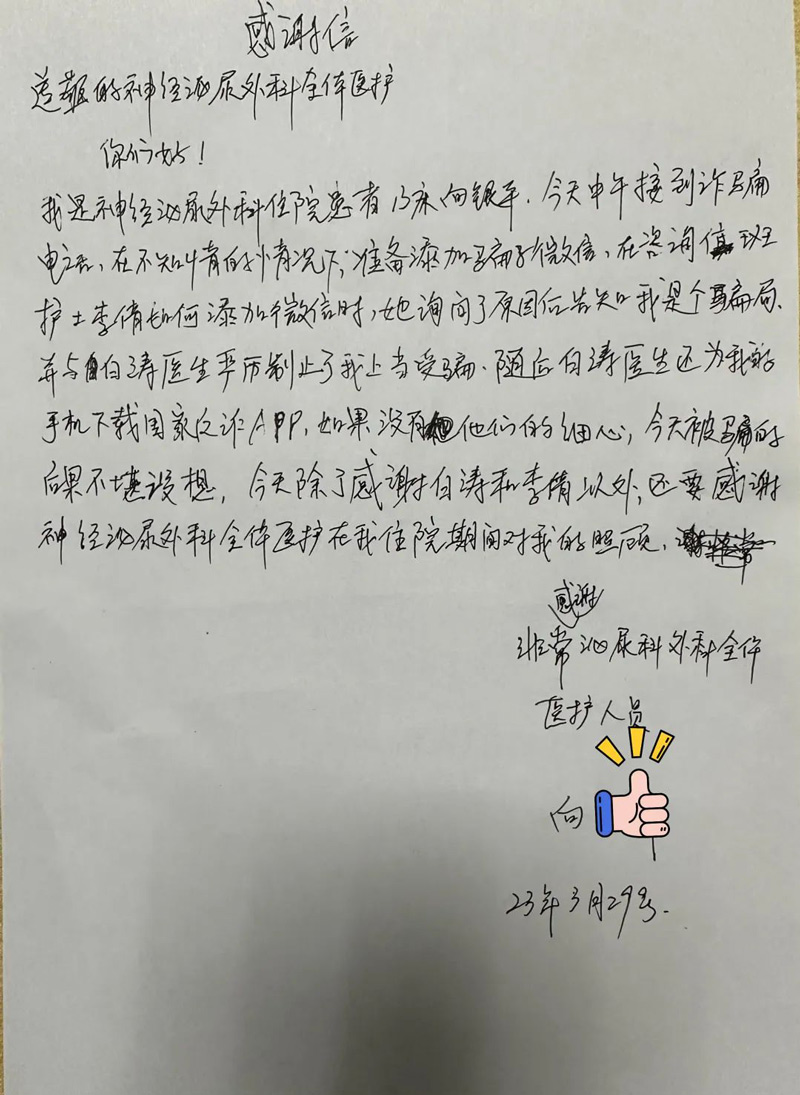 感谢信
尊敬的神经泌尿外科全体医护
你们好！
我是神经泌尿外科住院患者13床向银平.今天中午接到诈骗
电话,在不知情的情况下,准备添加骗子微信,在咨询值班
护士李倩如何添加微信时,她询问了原因后告知我是个骗局、
并与白涛医生严厉制止了我上当受骗.随后白涛医生还为我的
手机下载国家反诈APP,如果没有他们的细心,今天被骗的
后果不堪设想,今天除了感谢白涛和李倩以外,还要感谢
神经泌尿外科全体医护在我住院期间对我的照顾,
非常感谢泌尿科外科全体
医护人员
向
23年3月29号.